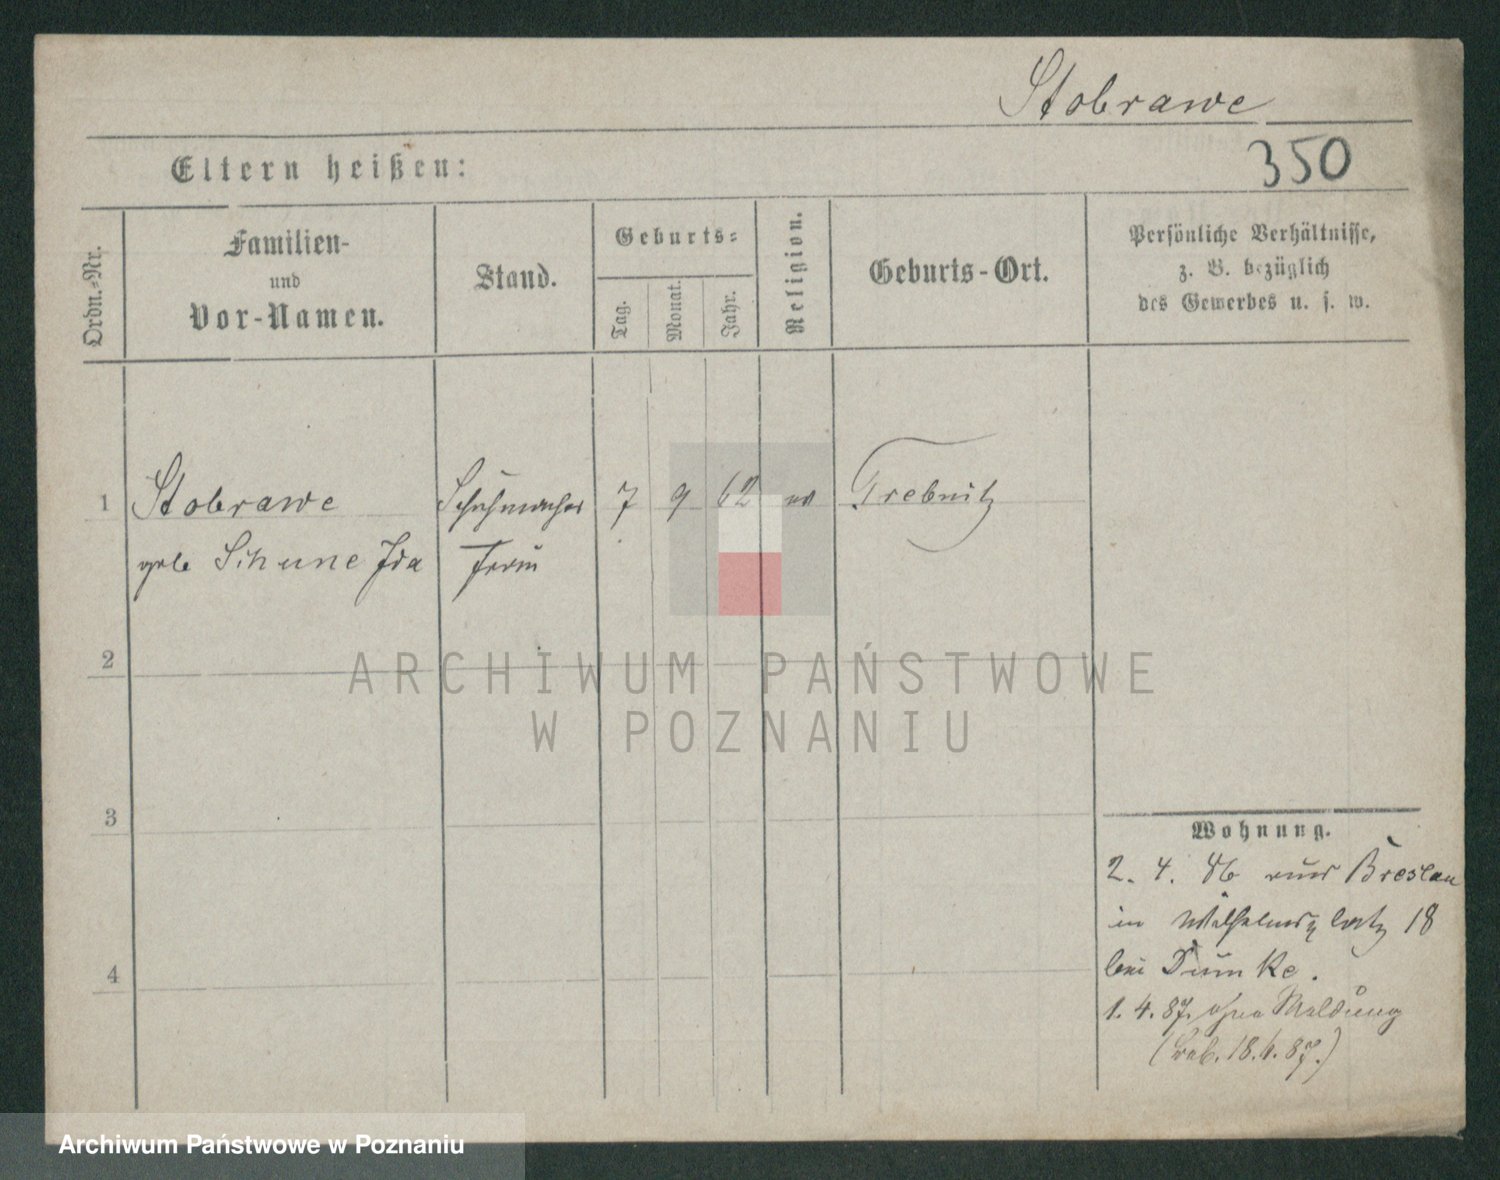 Stobrawe
350
Eltern heißen:
Ordn.-Nr.
Familien-
und
Vor-Namen.
Stand.
Geburts-
Tag.
Monat.
Jahr.
Religion.
Geburts-Ort.
Persönliche Verhältnisse,
z. B. bezüglich
des Gewerbes u. s. w.
1 Stobrawe Schuhmacher 7 9 62 Trebnitz
geb Schune Ida Frau
2
ARCHIWUM PAŃSTWOWE
W POZNANIU
3
4
Wohnung.
2. 4. 86 aus Breslau
in Wilhelmsplatz 18
bei Dumke.
1. 4. 87. ohne Meldung
18. 6. 87.)
Archiwum Państwowe w Poznaniu